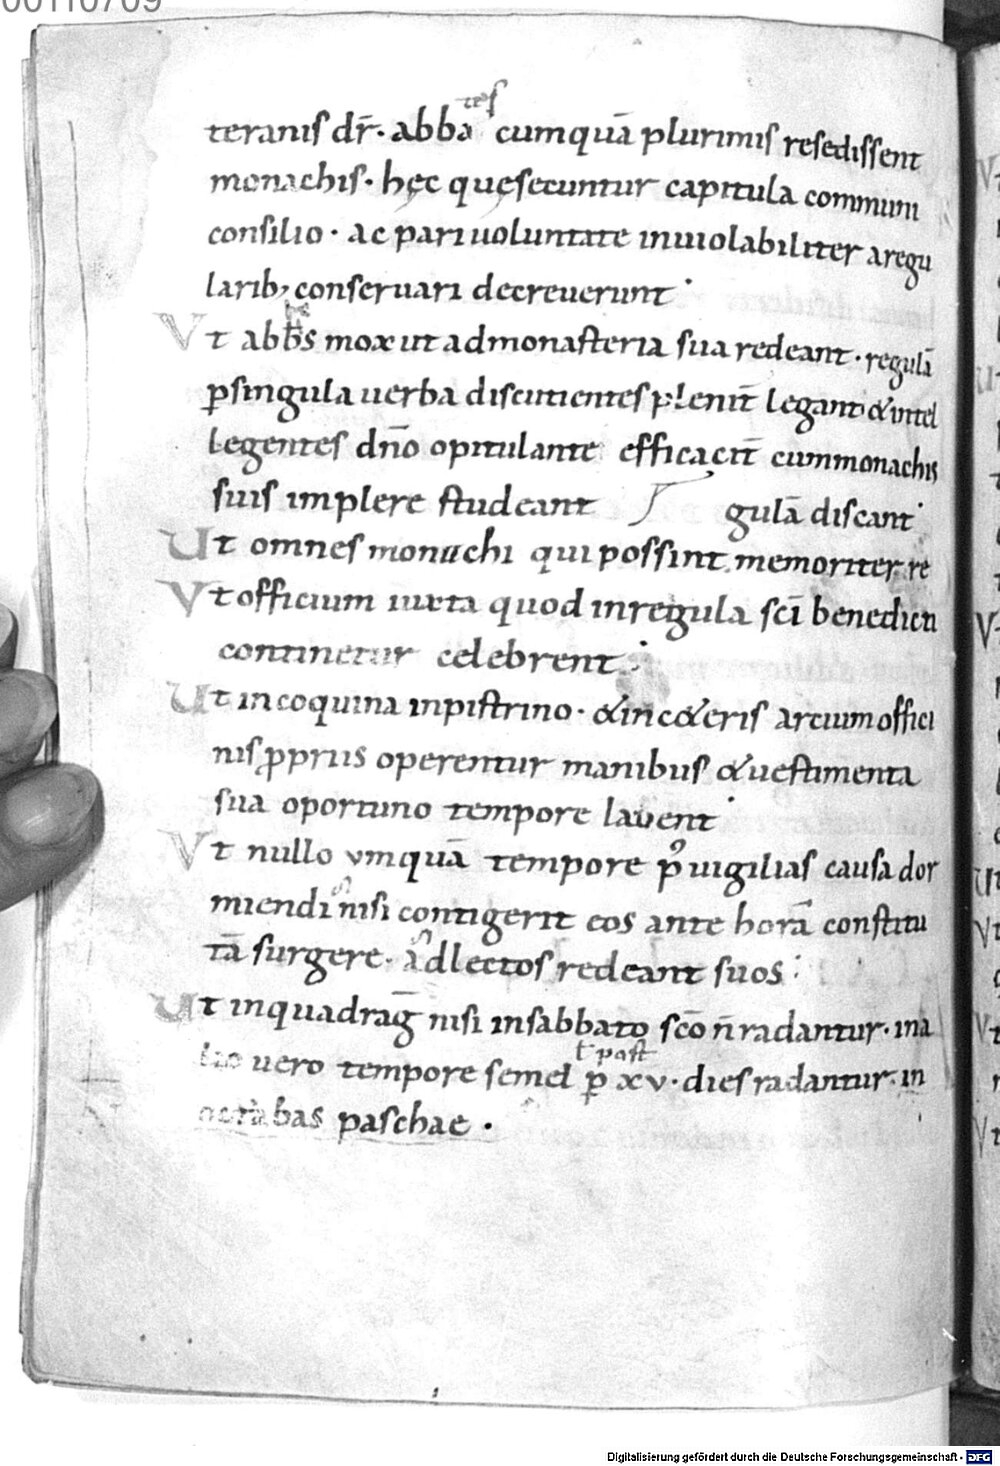 00110709
teranis dr̄· abbates cumquā plurimis resedissent
monachis· hęc quęsecuntur capitula communi
consilio· ac pari uoluntate inuiolabiliter aregu
larib; conseruari decreuerunt·
Vt abb̄s mox ut admonasteria sua redeant· regulā
ꝑsingula uerba discutientes plenit̄ legant & intel
legentes dn̄o opitulante efficacit̄ cummonachis
suis implere studeant
gulā discant·
Ut omnes monachi qui possint memoriter re
Vt officium iuxta quod inregula sc̄i benedicti
continetur celebrent·
Ut incoquina inpistrino· &inc&eris artium offici
nis ꝓpriis operentur manibus & uestimenta
sua oportuno tempore lauent·
Vt nullo vmquā tempore p᷒ uigilias causa dor
miendi nisi contigerit eos ante horā constitu
tā surgere· adlectos redeant suos·
Ut inquadraḡ nisi insabbato sc̄o n̄ radantur· ina
lio uero tempore semel ꝑ xv· dies radantur· in
ł post
octabas paschae·
Digitalisierung gefördert durch die Deutsche Forschungsgemeinschaft - DFG